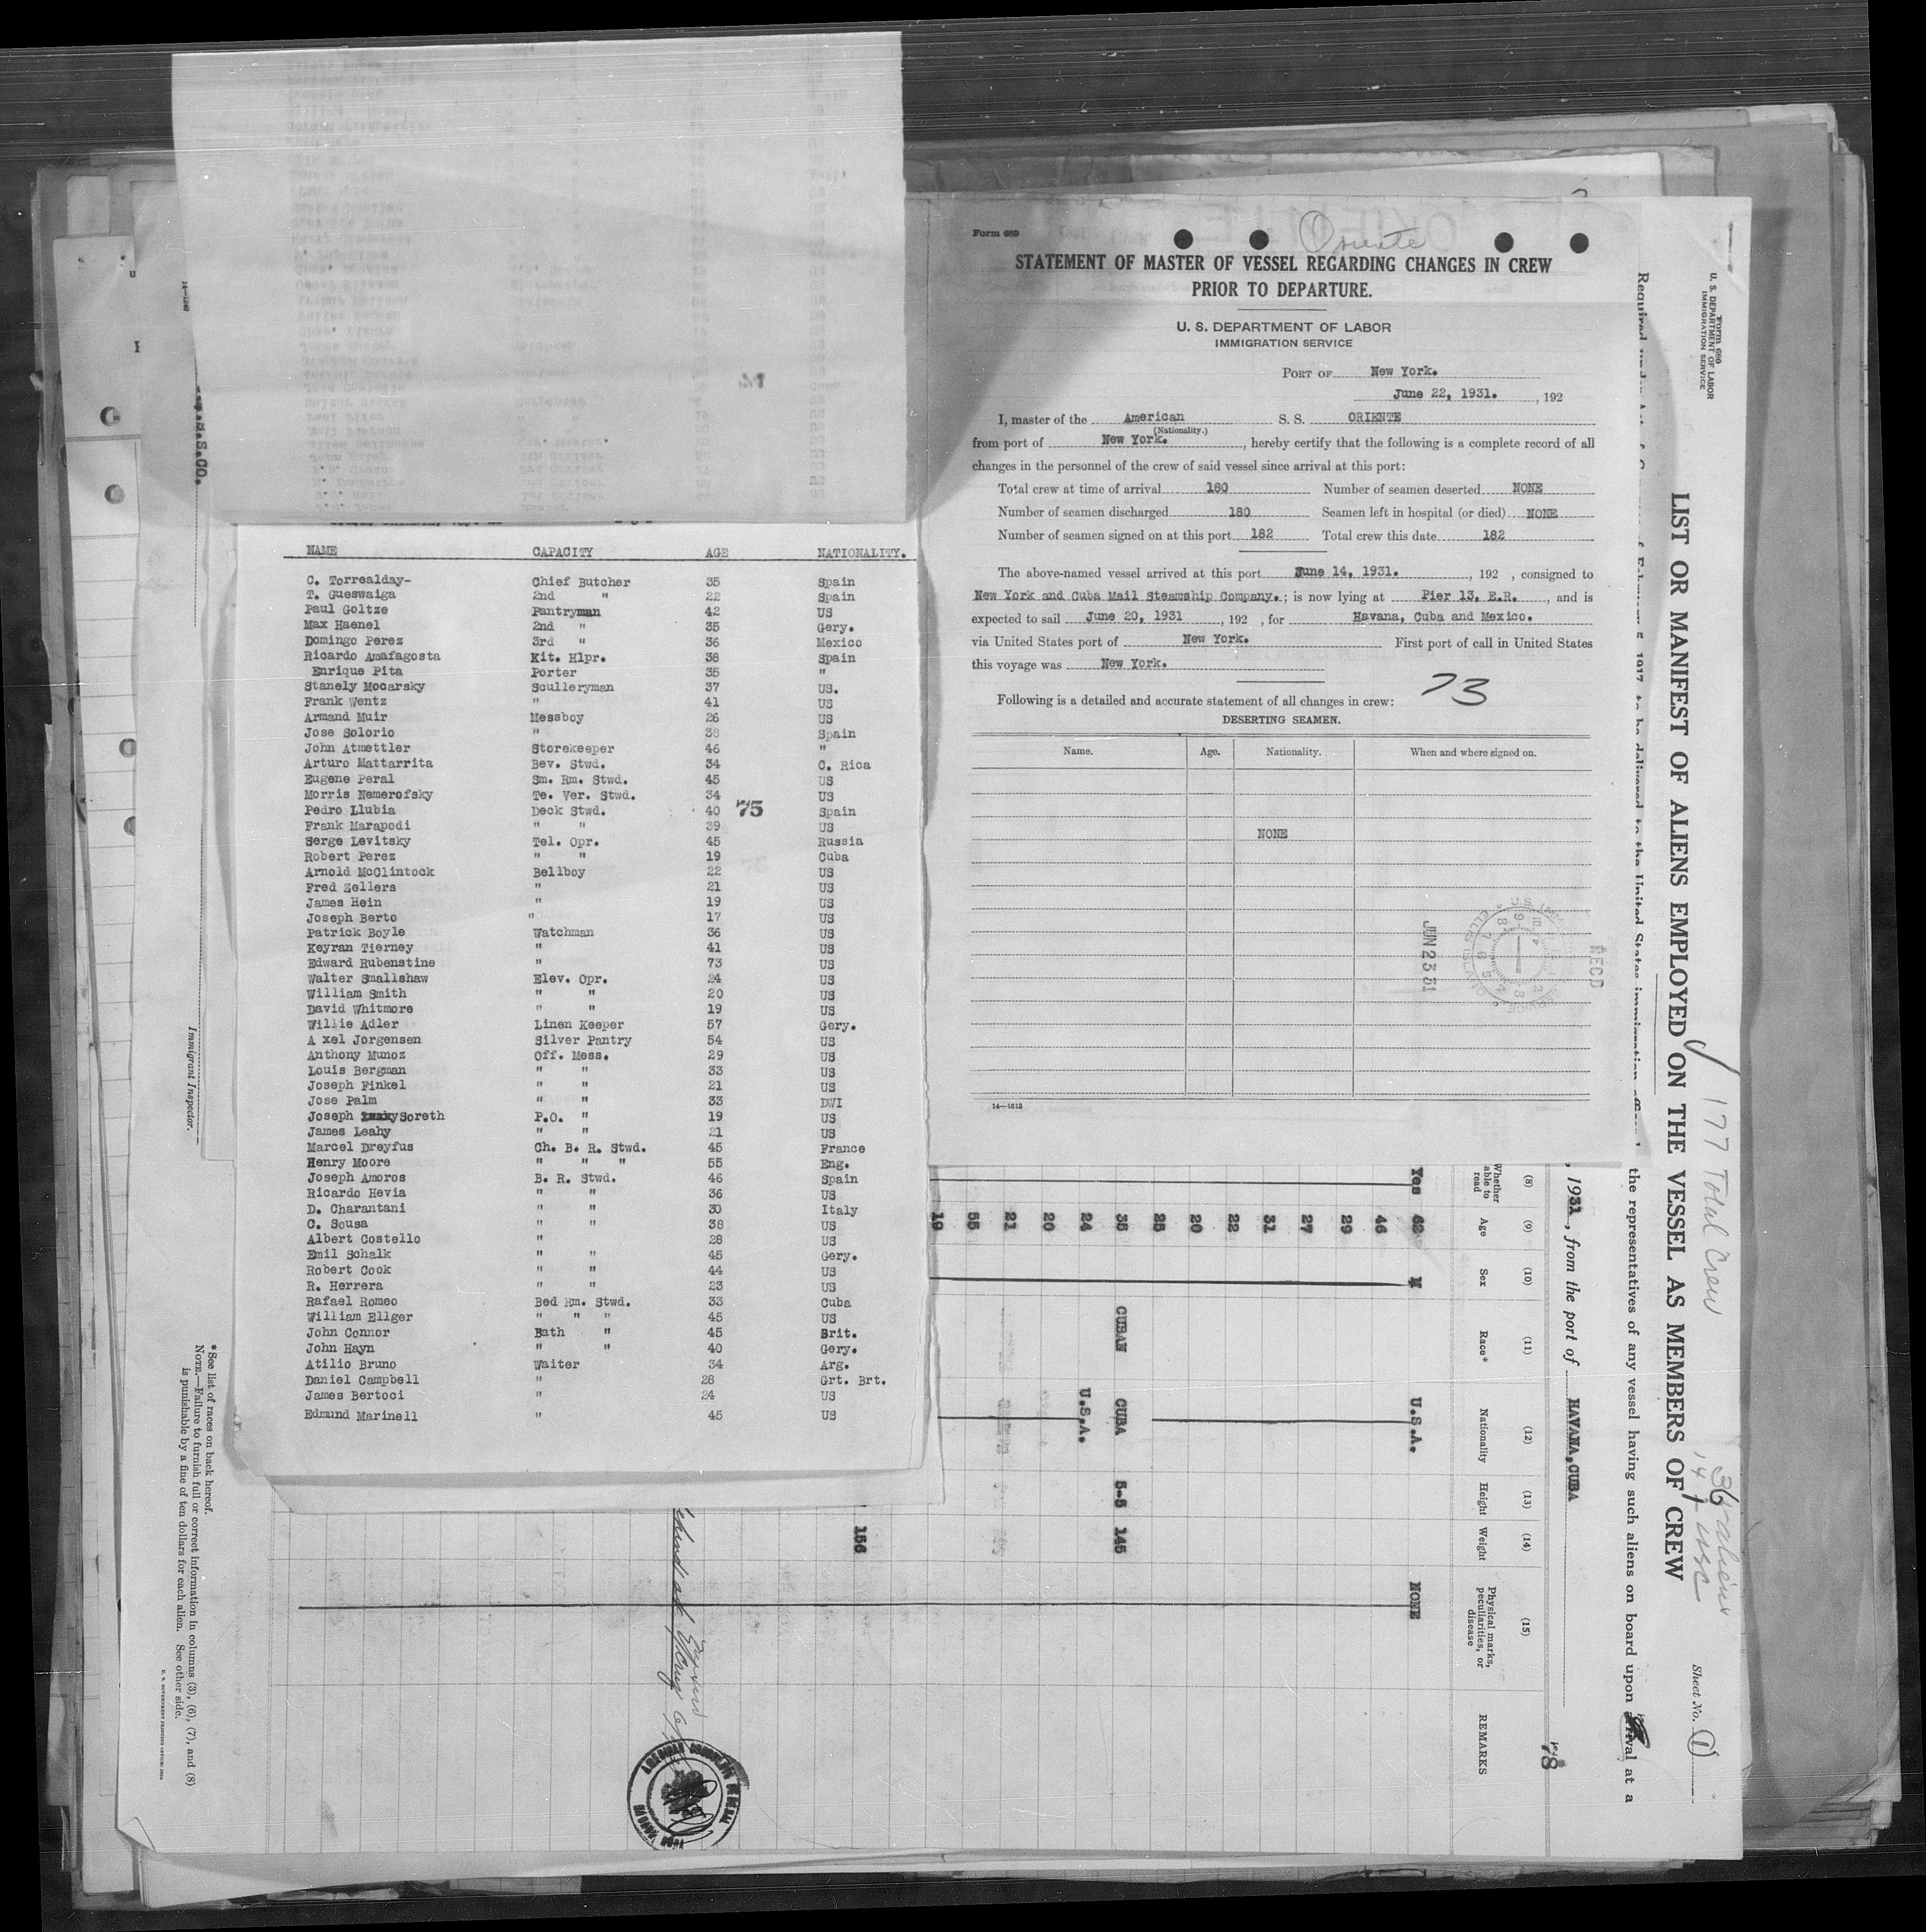 NAME CAPACITY AGE NATIONALITY.
C. Torrealday- Chief Butcher 35 Spain
T. Gueswaiga 2nd " 22 Spain
Paul Goltze Pantryman 42 US
Max Haenel 2nd " 35 Gery.
Domingo Perez 3rd " 36 Mexico
Ricardo Amafagosta Kit. Hlpr. 38 Spain
Enrique Pita Porter 35 "
Stanely Mocarsky Sculleryman 37 US.
Frank Wentz " 41 US
Armand Muir Messboy 26 US
Jose Solorio " 38 Spain
John Atmettler Storekeeper 46 "
Arturo Mattarrita Bev. Stwd. 34 C. Rica
Eugene Peral Sm. Rm. Stwd. 45 US
Morris Nemerofsky Te. Ver. Stwd. 34 US
Pedro Llubia Deck Stwd. 40 75 Spain
Frank Marapodi " " 39 US
Serge Levitsky Tel. Opr. 45 Russia
Robert Perez " " 19 Cuba
Arnold McClintock Bellboy 22 US
Fred Zellers " 21 US
James Hein " 19 US
Joseph Berto " 17 US
Patrick Boyle Watchman 36 US
Keyran Tierney " 41 US
Edward Rubenstine " 73 US
Walter Smallshaw Elev. Opr. 24 US
William Smith " " 20 US
David Whitmore " " 19 US
Willie Adler Linen Keeper 57 Gery.
A xel Jorgensen Silver Pantry 54 US
Anthony Munoz Off. Mess. 29 US
Louis Bergman " " 33 US
Joseph Finkel " " 21 US
Jose Palm " " 33 DWI
Joseph Soreth P.O. " 19 US
James Leahy " " 21 US
Marcel Dreyfus Ch. B. R. Stwd. 45 France
Henry Moore " " " 55 Eng.
Joseph Amoros B. R. Stwd. 46 Spain
Ricardo Hevia " " 36 US
D. Charantani " " 30 Italy
C. Sousa " " 38 US
Albert Costello " 28 US
Emil Schalk " " 45 Gery.
Robert Cook " " 44 US
R. Herrera " " 23 US
Rafael Romeo Bed Rm. Stwd. 33 Cuba
William Ellger " " " 45 US
John Connor Bath " 45 Brit.
John Hayn " " 40 Gery.
Atilio Bruno Waiter 34 Arg.
Daniel Campbell " 28 Grt. Brt.
James Bertoci " 24 US
Edmund Marinell " 45 US
Form 689
Oriente
STATEMENT OF MASTER OF VESSEL REGARDING CHANGES IN CREW
PRIOR TO DEPARTURE.
U. S. DEPARTMENT OF LABOR
IMMIGRATION SERVICE
PORT OF New York.
June 22, 1931. , 192
I, master of the American S. S. ORIENTE
(Nationality.)
from port of New York. , hereby certify that the following is a complete record of all
changes in the personnel of the crew of said vessel since arrival at this port:
Total crew at time of arrival 180 Number of seamen deserted NONE
Number of seamen discharged 180 Seamen left in hospital (or died) NONE
Number of seamen signed on at this port 182 Total crew this date 182
The above-named vessel arrived at this port June 14, 1931. , 192 , consigned to
New York and Cuba Mail Steamship Company. ; is now lying at Pier 13, E.R. , and is
expected to sail June 20, 1931 , 192 , for Havana, Cuba and Mexico.
via United States port of New York. First port of call in United States
this voyage was New York.
73
Following is a detailed and accurate statement of all changes in crew:
DESERTING SEAMEN.
Name. Age. Nationality. When and where signed on.
NONE
JUN 23 31
REC'D
14—1613
Form 680
U. S. DEPARTMENT OF LABOR
IMMIGRATION SERVICE
177 Total Crew
36 aliens
147 USC
Sheet No. 1
LIST OR MANIFEST OF ALIENS EMPLOYED ON THE VESSEL AS MEMBERS OF CREW
the representatives of any vessel having such aliens on board upon arrival at a
, 1931 , from the port of HAVANA, CUBA
78
(8) (9) (10) (11) (12) (13) (14) (15)
Whether able to read Age Sex Race* Nationality Height Weight Physical marks, peculiarities, or disease REMARKS
Yes 62 M U.S.A. NONE
46
29
27
31
22
20
25
35 CUBAN CUBA 5-5 145
24 U.S.A.
20
21
55
19
156
S.S.CO.
Immigrant Inspector.
* See list of races on back hereof.
NOTE.—Failure to furnish full or correct information in columns (3), (6), (7), and (8)
is punishable by a fine of ten dollars for each alien. See other side.
U. S. GOVERNMENT PRINTING OFFICE